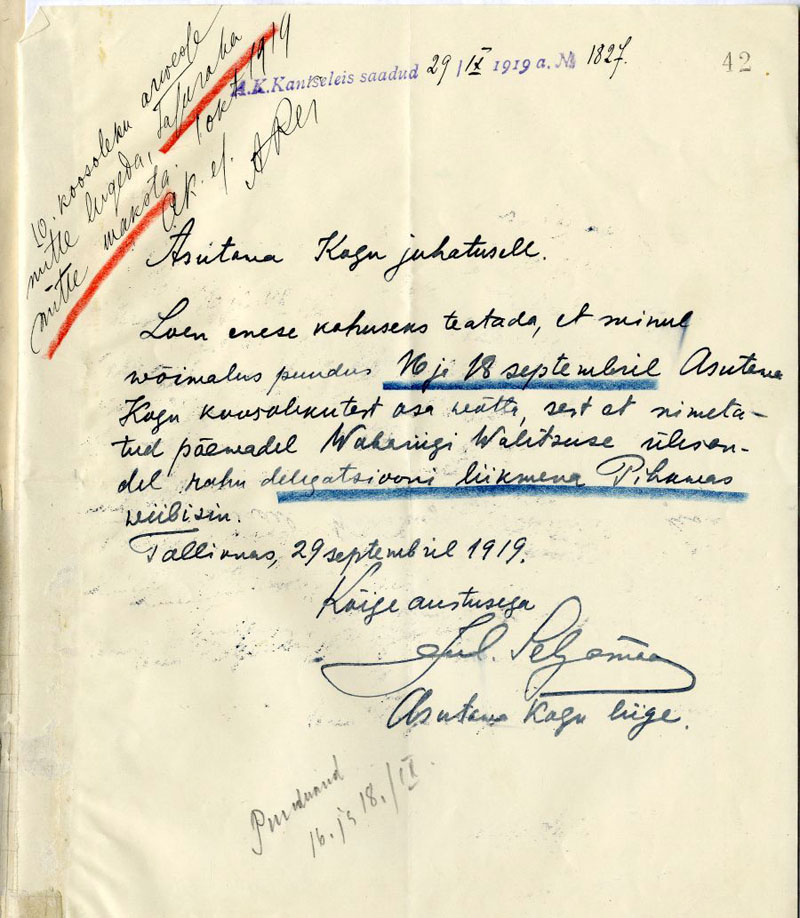 A.K. Kantseleis saadud 29/IX 1919 a. № 1827.
42
10. koosoleku arwele
mitte lugeda, Tasuraha
mitte maksta. 1 okt 1919
Ak. es. ARei
Asutawa Kogu juhatusele.
Loen enese kohuseks teatada, et minul
wõimalus puudus 16 ja 18 septembril Asutawa
Kogu koosolekutest osa wõtta, sest et nimeta-
tud päewadel Wabariigi Walitsuse ülesan-
del rahu delegatsiooni liikmena Pihkwas
wiibisin.
Tallinnas, 29 septembril 1919.
Kõige austusega
Jul. Seljamaa
Asutawa Kogu liige.
Puudunud
16. ja 18./IX.